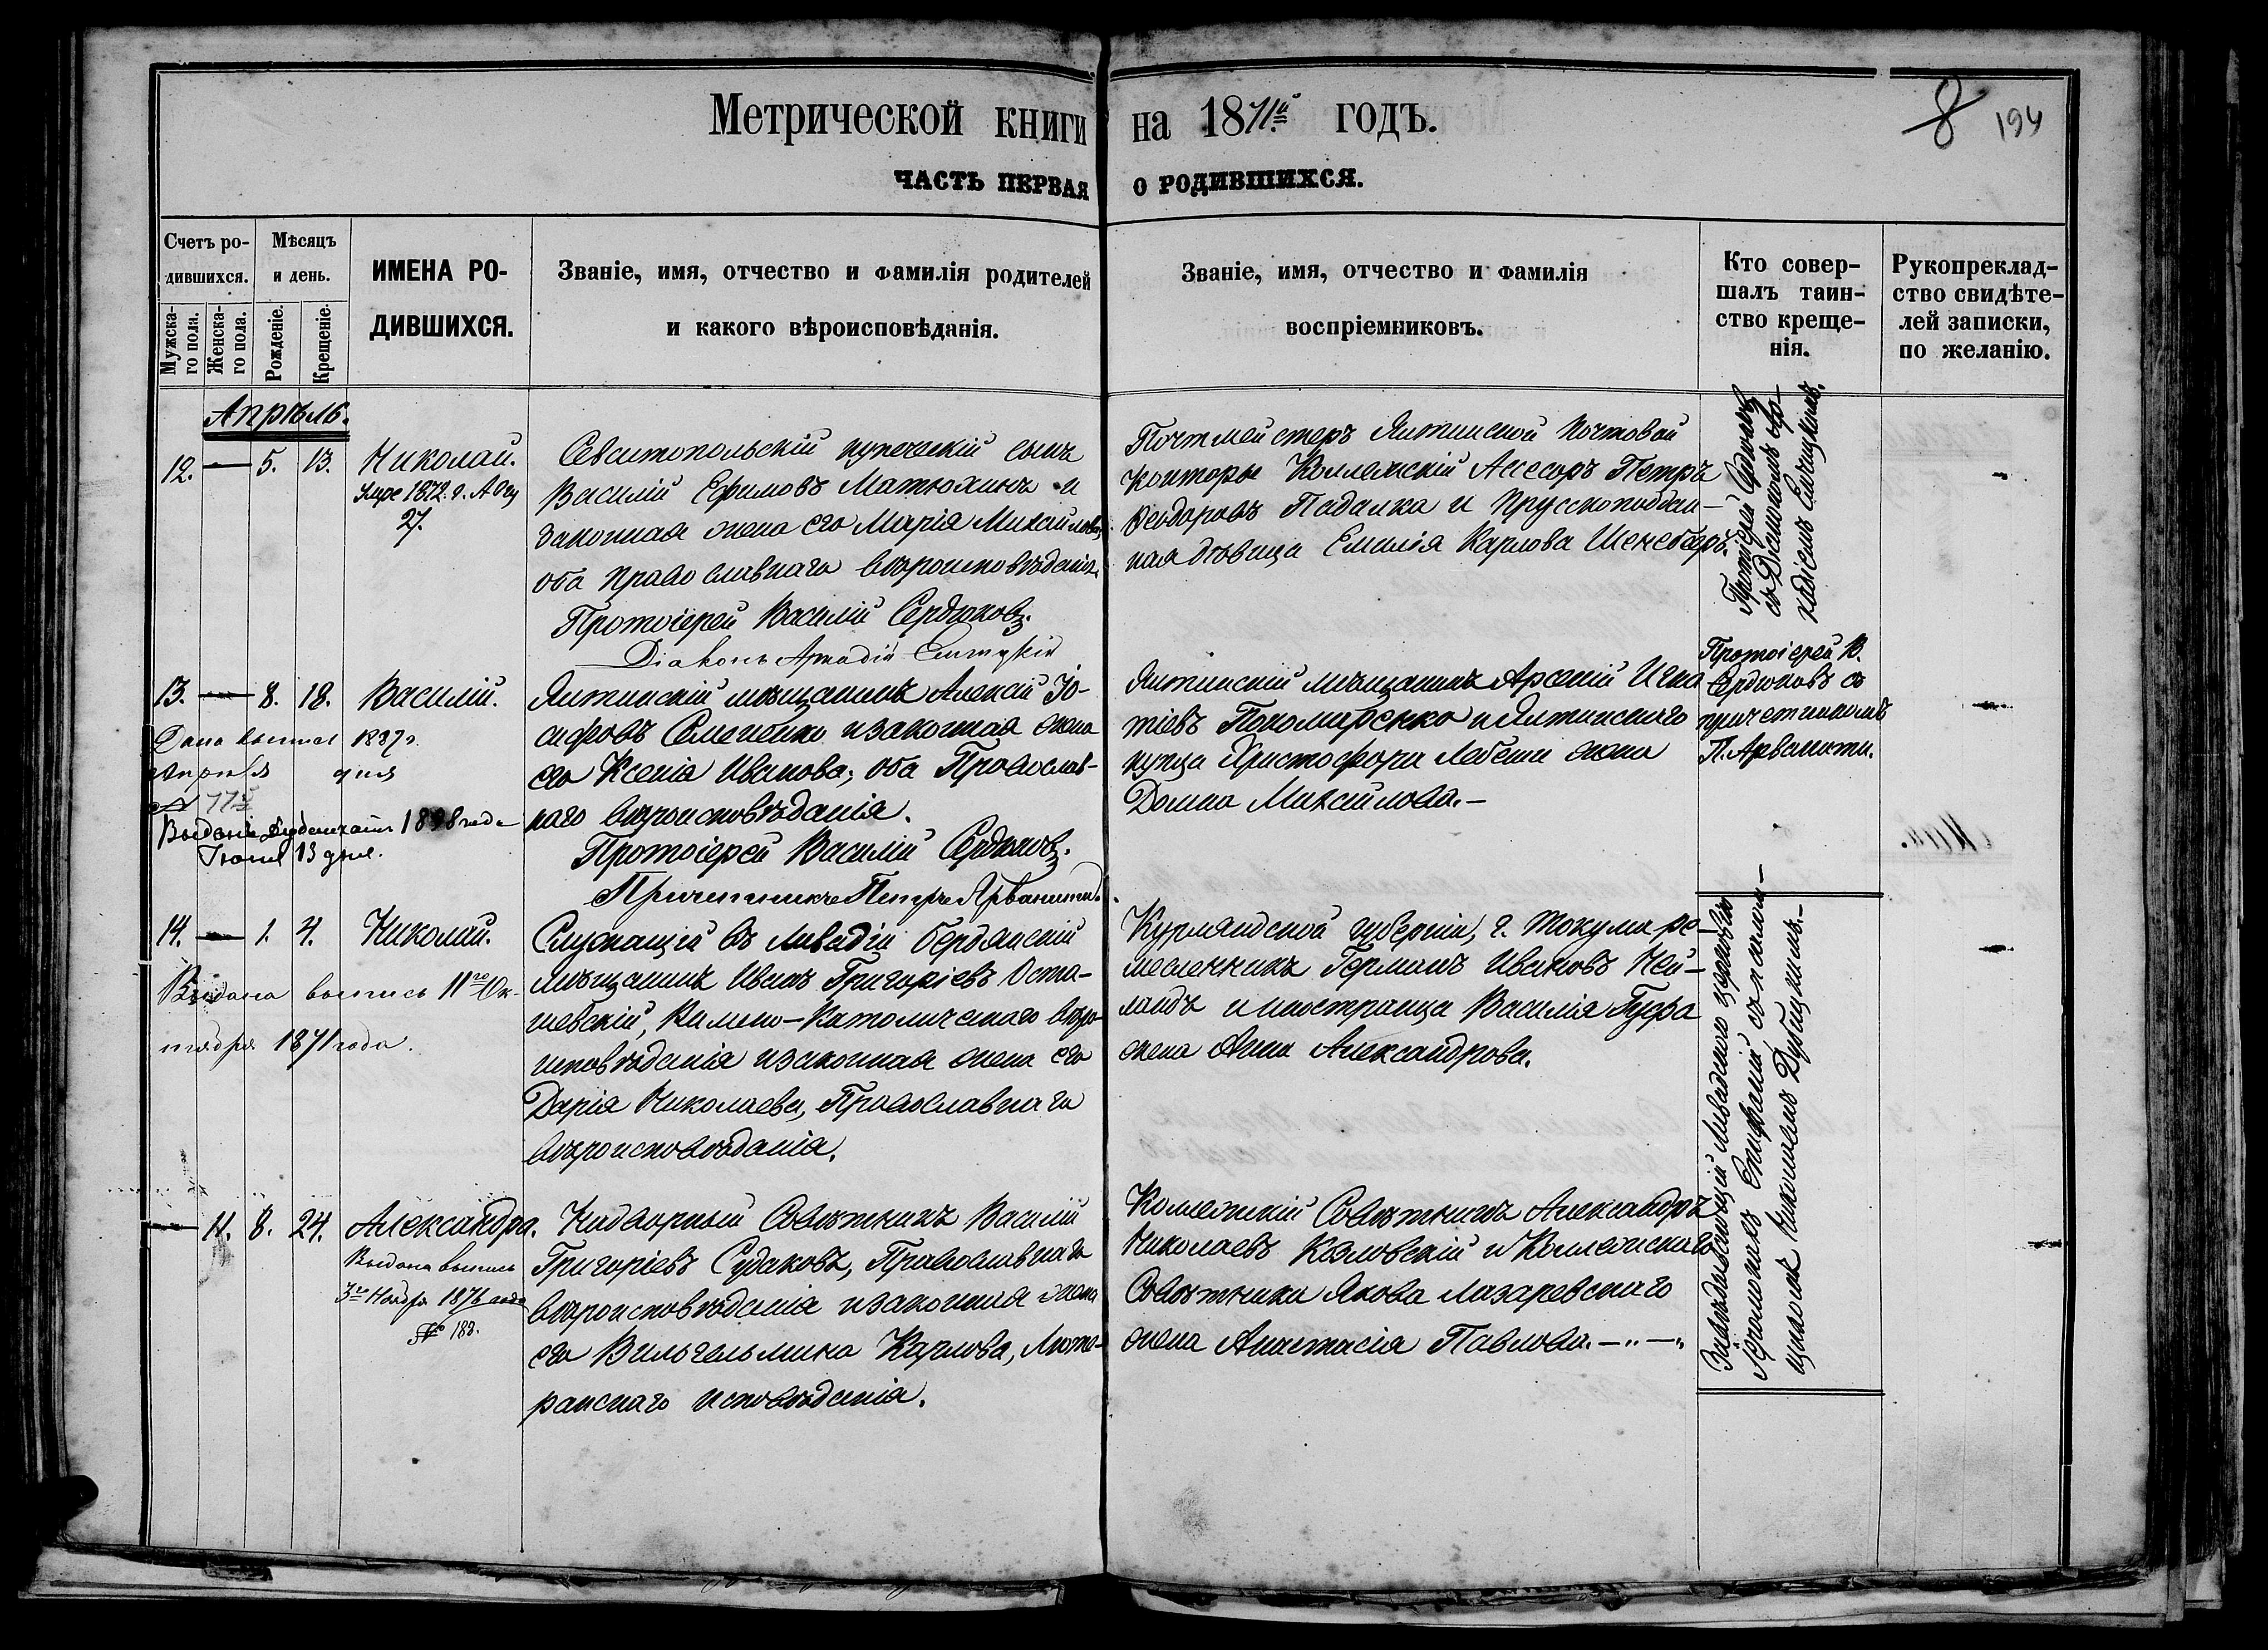 Метрической книги на 1871й годъ.
8 194
ЧАСТЬ ПЕРВАЯ О РОДИВШИХСЯ.
Счетъ ро-
дившихся.
Мужска-
го пола.
Женска-
го пола.
Мѣсяцъ
и день.
Рожденіе.
Крещеніе.
ИМЕНА РО-
ДИВШИХСЯ.
Званіе, имя, отчество и фамилія родителей
и какого вѣроисповѣданія.
Званіе, имя, отчество и фамилія
воспріемниковъ.
Кто совер-
шалъ таин-
ство креще-
нія.
Рукопреклад-
ство свидѣте-
лей записки,
по желанію.
Апрѣль.
12. — 5. 13. Николай.
Умре 1872. г. Авгу
27.
Севастопольскій купеческій сынъ
Василій Ефимовъ Матюхинъ и
законная жена его Марія Михайлова,
оба православнаго вѣроисповѣданія.
Протоіерей Василій Сердюковъ.
Діаконъ Аркадій
Почтмейстеръ Ялтинской Почтовой
Конторы Коллежскій Ассесоръ Петръ
Ѳеодоровъ Падалка и Прусскоподдан-
ная дѣвица Емилія Карлова
Протоіерей Сердюковъ
съ Діакономъ Ар-
кадіемъ
13. — 8. 18. Василій.
Дана выпись 1887г.
Апрѣля дня
Выдано 1898 года
Іюня 13 дня.
Ялтинскій мѣщанинъ Алексій Іо-
сифовъ Семененко и законная жена
его Ксенія Иванова, оба Православ-
наго вѣроисповѣданія.
Протоіерей Василій Сердюковъ.
Причетникъ Петръ Арванити.
Ялтинскій мѣщанинъ Арсеній Игна
тіевъ Пономаренко и Ялтинскаго
купца Христофора жена
Домна Михайлова.—
Протоіерей В.
Сердюковъ съ
причетникомъ
П. Арванити.
14. — 1. 4. Николай.
Выдана выпись 11го Ок-
тября 1871 года.
Служащій въ Ливадіи Бердянскій
мѣщанинъ Иванъ Григоріевъ Оста-
шевскій, Римско-Католическаго вѣро-
исповѣданія и законная жена его
Дарія Николаева, Православнаго
вѣроисповѣданія.
Курляндской губерніи, г. Токума ре-
месленникъ Германъ Ивановъ Ней-
ландъ и иностранца Василія
жена Анна Александрова.
Завѣдывающій Ливадскою церковію
Іеромонахъ Епифаній съ псалом-
щикомъ Николаемъ
— 11. 8. 24. Александра.
Выдана выпись
3го Ноября 1876 года
№ 183.
Надворный Совѣтникъ Василій
Григоріевъ Судаковъ, Православнаго
вѣроисповѣданія и законная жена
его Вильгельмина Карлова, Люте-
ранскаго исповѣданія.
Коллежскій Совѣтникъ Александръ
Николаевъ Козловскій и Коллежскаго
Совѣтника Якова Лазаревскаго
жена Анастасія Павлова.—„—„